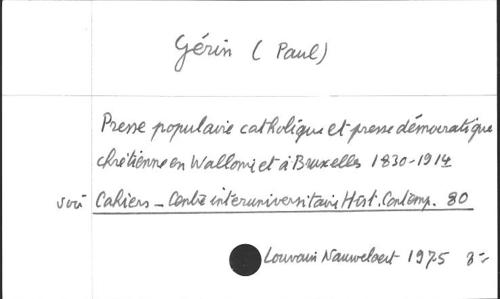 Gérin (Paul)
Presse populaire catholique et presse démocratique
chrétienne en Wallonie et à Bruxelles 1830-1914
Cahiers - Centre interuniversitaire Hist. Contemp. 80
Louvain Nauwelaert 1975